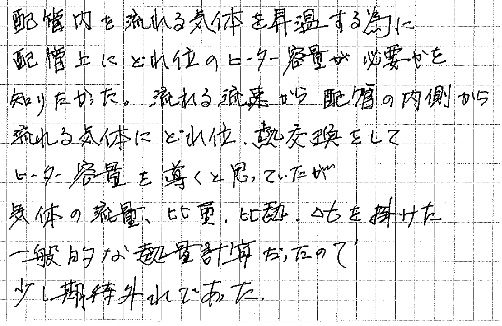 配管内を流れる気体を昇温する為に
配管上にどれ位のヒーター容量が必要かを
知りたかった。流れる流速から配管の内側から
流れる気体にどれ位、熱交換をして
ヒーター容量を導くと思っていたが
気体の流量、比重、比熱、Δtを掛けた
一般的な熱量計算だったので
少し期待外れであった.